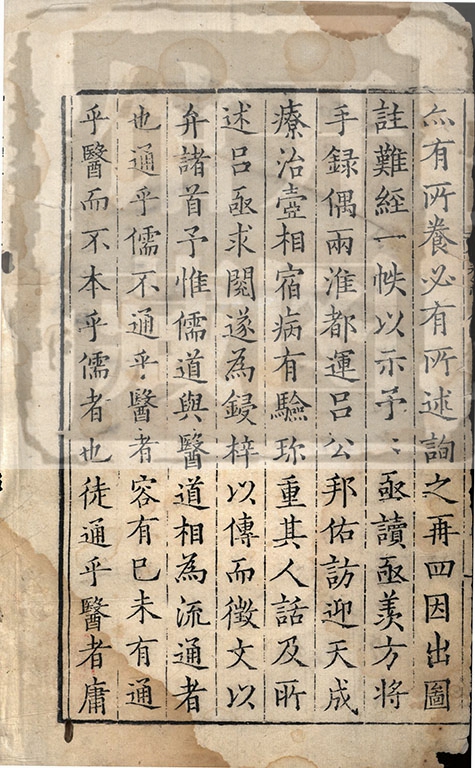 亦有所養必有所述詢之再四因出圖
註難經一帙以示予〻亟讀亟羨方將
手録偶兩淮都運吕公邦佑訪迎天成
療治壼相宿病有驗珎重其人話及所
述吕亟求閱遂為鋟梓以傳而徵文以
弁諸首予惟儒道與醫道相為流通者
也通乎儒不通乎醫者容有巳未有通
乎醫而不本乎儒者也徒通乎醫者庸